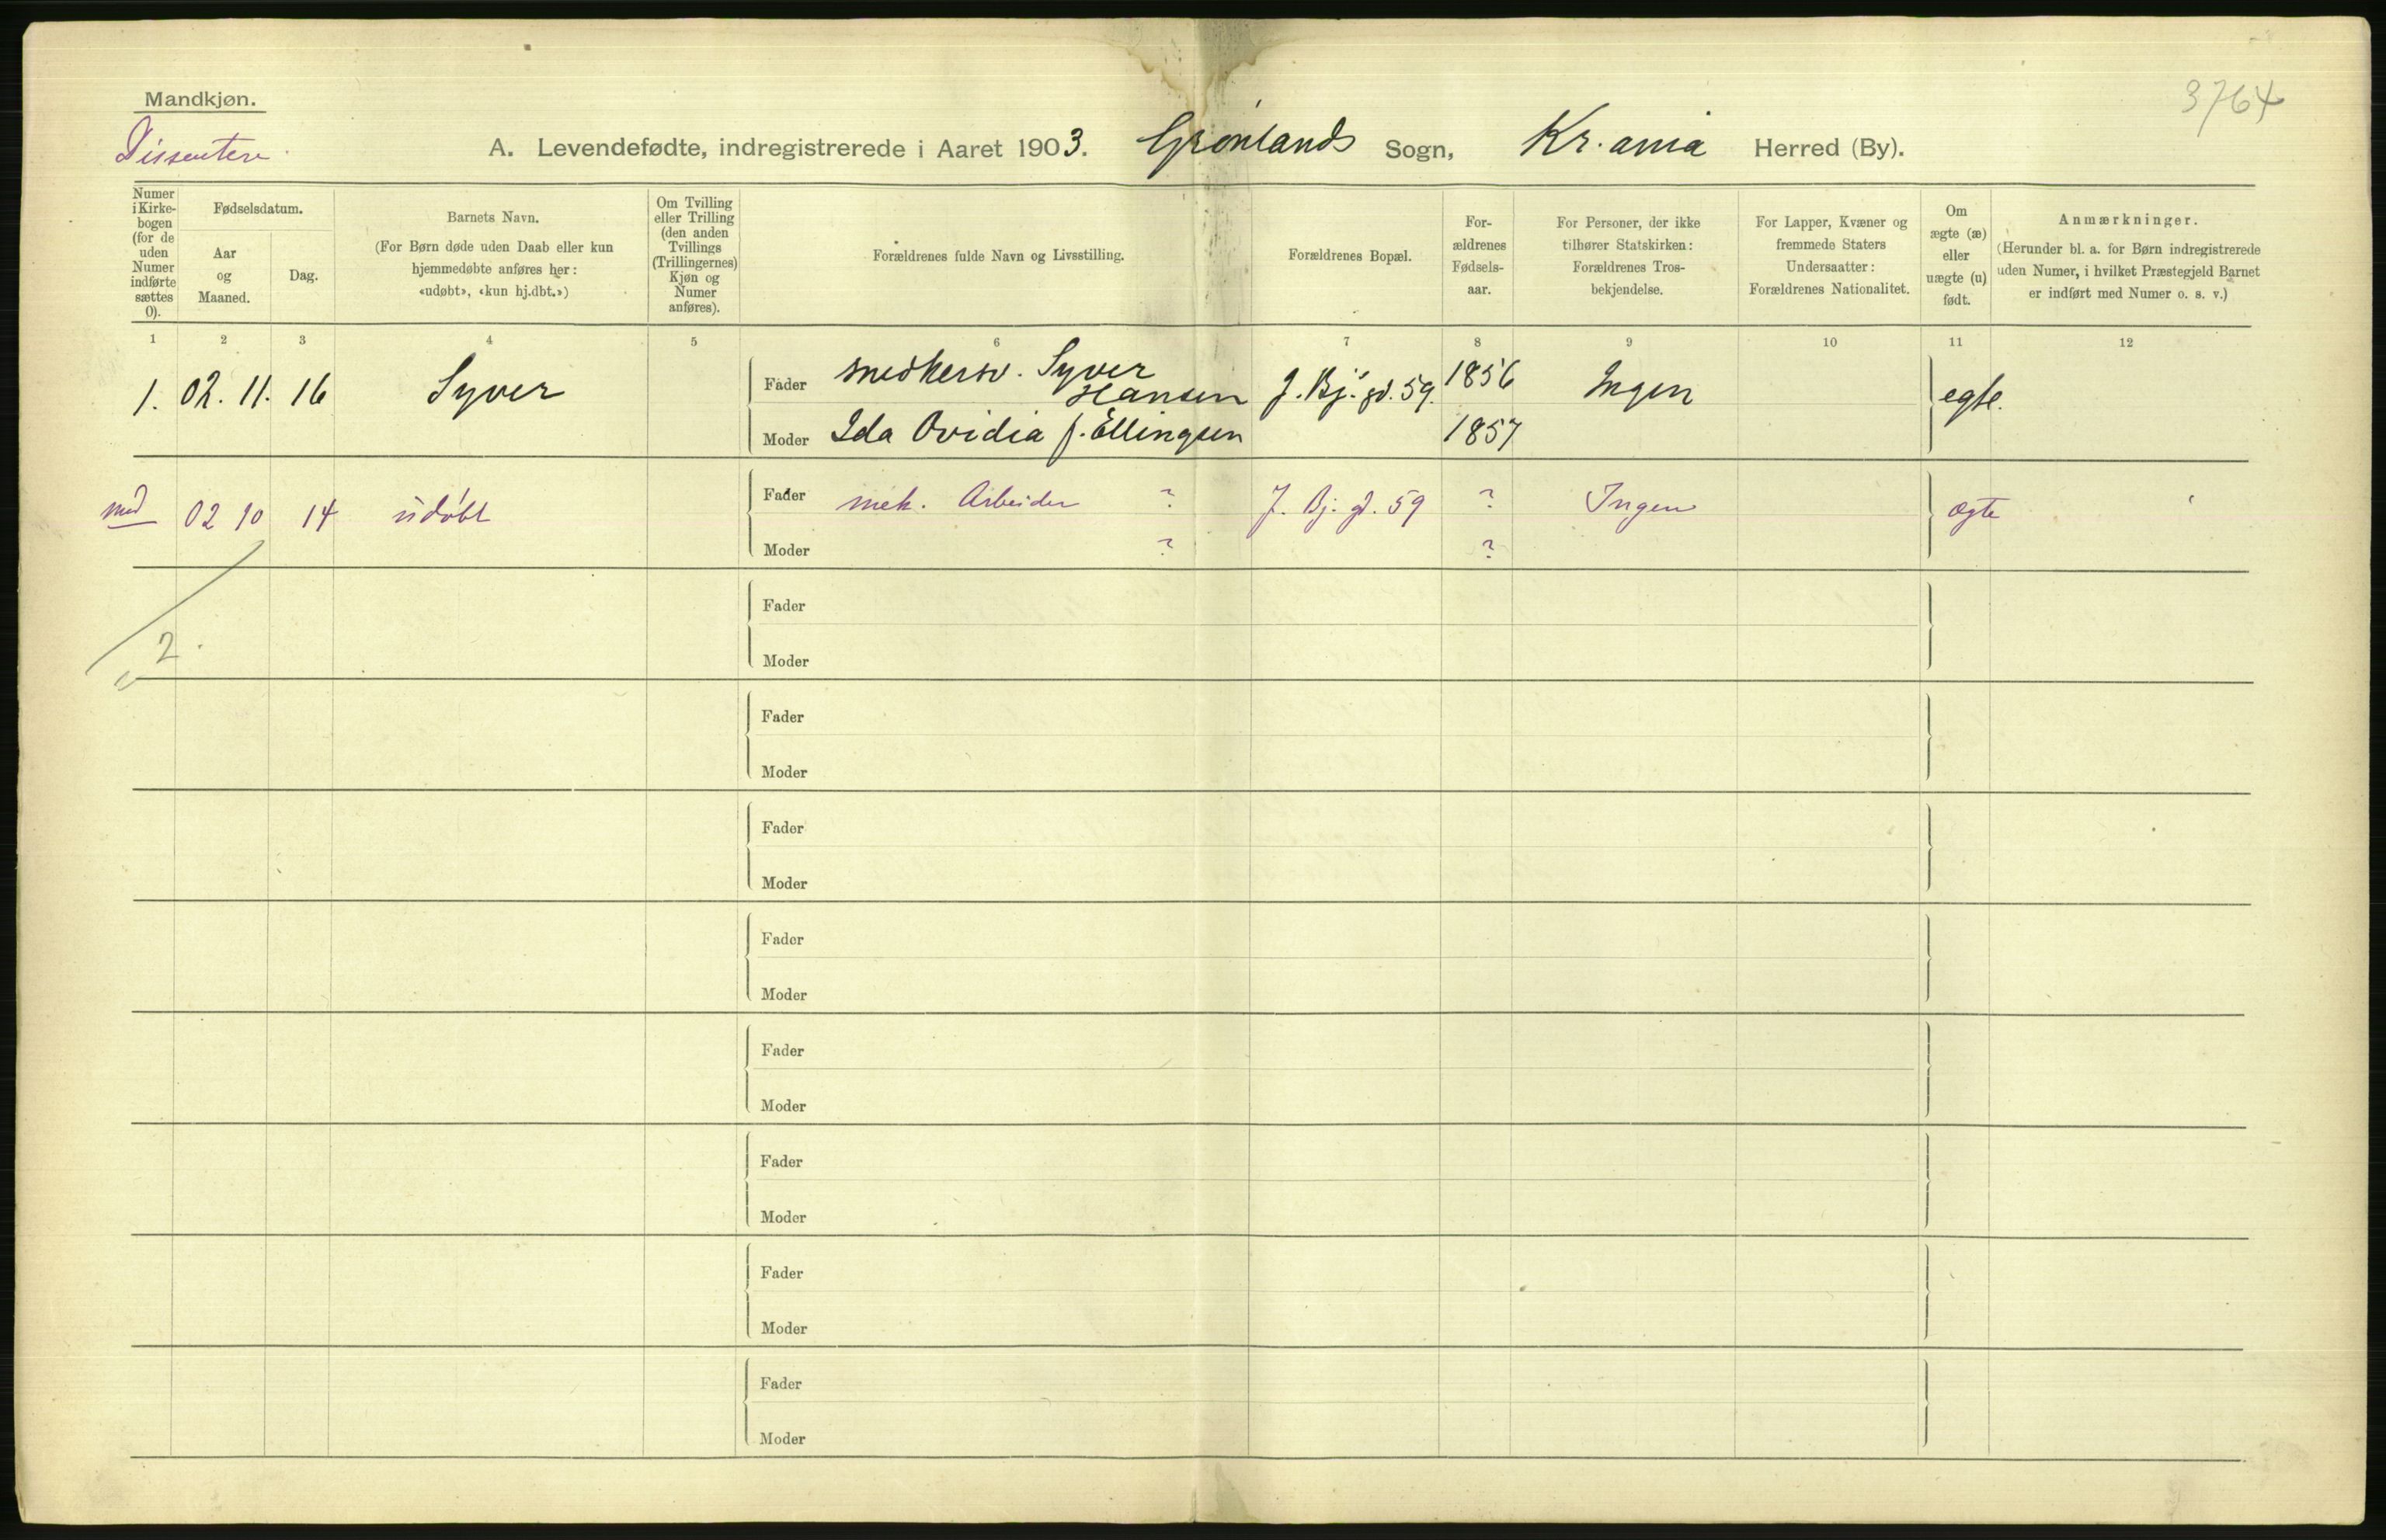 Mandkjøn.
3764
Dissentere
A. Levendefødte, indregistrerede i Aaret 1903. Grønlands Sogn, Kr.ania Herred (By).
Numer i Kirkebogen (for de uden Numer indførte sættes 0).
Fødselsdatum.
Aar og Maaned.
Dag.
Barnets Navn.
(For Børn døde uden Daab eller kun
hjemmedøbte anføres her:
«udøbt», «kun hj.dbt.»)
Om Tvilling
eller Trilling
(den anden
Tvillings
(Trillingernes)
Kjøn og
Numer
anføres).
Forældrenes fulde Navn og Livsstilling.
Forældrenes Bopæl.
For-
ældrenes
Fødsels-
aar.
For Personer, der ikke
tilhører Statskirken:
Forældrenes Tros-
bekjendelse.
For Lapper, Kvæner og
fremmede Staters
Undersaatter:
Forældrenes Nationalitet.
Om
ægte (æ)
eller
uægte (u)
født.
Anmærkninger.
(Herunder bl. a. for Børn indregistrerede
uden Numer, i hvilket Præstegjeld Barnet
er indført med Numer o. s. v.)
1 2 3 4 5 6 7 8 9 10 11 12
1. 02. 11. 16 Syver Fader snedkersv. Syver Hansen J. Bj. gd. 59. 1856 Ingen egte.
Moder Ida Ovidia f. Ellingsen 1857
med 02 10 14 udøbt Fader mek. Arbeider ? J. Bj. gd. 59 ? Ingen ægte
Moder ? ?
Fader
2.
Moder
Fader
Moder
Fader
Moder
Fader
Moder
Fader
Moder
Fader
Moder
Fader
Moder
Fader
Moder